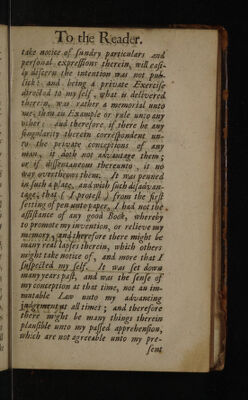 To the Reader.
take notice of sundry particulars and
personal expressions therein, will easi-
ly discern the intention was not pub-
lick: and being a private Exercise
directed to my self, what is delivered
therein, was rather a memorial unto
me, then an Example or rule unto any
other: and therefore if there be any
singularity therein correspondent un-
to the private conceptions of any
man, it doth not advantage them;
or if dissentaneous thereunto, it no
way overthrows them. It was penned
in such a place, and with such disadvan-
tage, that (I protest) from the first
setting of pen unto paper, I had not the
assistance of any good Book, whereby
to promote my invention, or relieve my
memory, and therefore there might be
many real lapses therein, which others
might take notice of, and more that I
suspected my self. It was set down
many years past, and was the sense of
my conception at that time, not an im-
mutable Law unto my advancing
judgement at all times; and therefore
there might be many things therein
plausible unto my passed apprehension,
which are not agreeable unto my pre-
sent